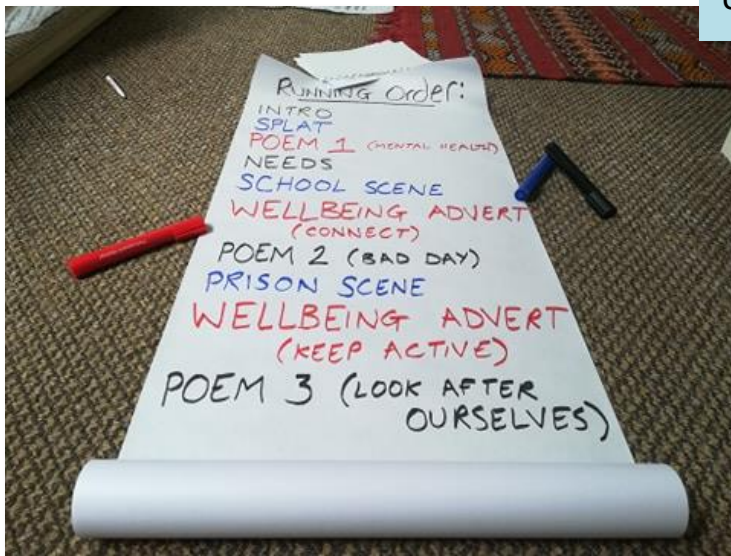 RUNNING Order:
INTRO
SPLAT
POEM 1 (MENTAL HEALTH)
NEEDS
SCHOOL SCENE
WELLBEING ADVERT
(CONNECT)
POEM 2 (BAD DAY)
PRISON SCENE
WELLBEING ADVERT
(KEEP ACTIVE)
POEM 3 (LOOK AFTER
OURSELVES)